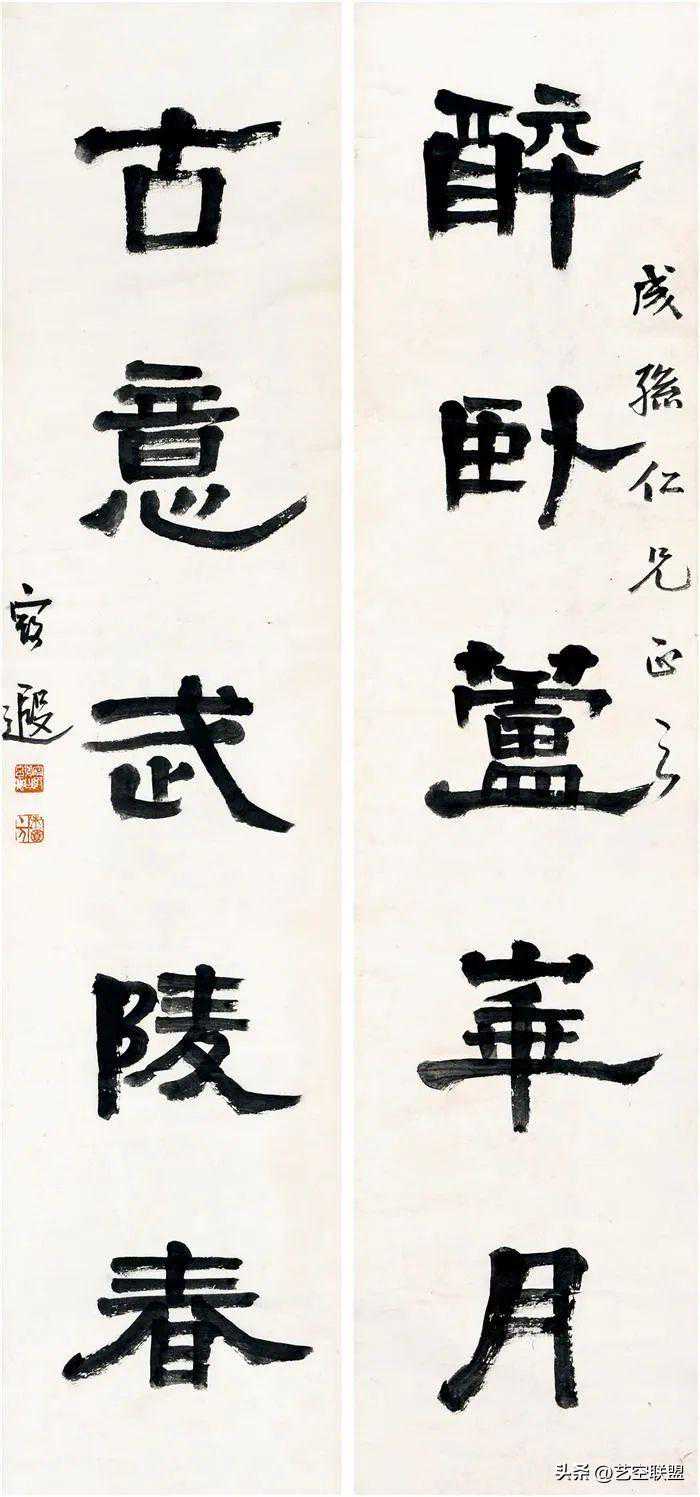 醉卧蘆華月
成孫仁兄正之
古意武陵春
遐
头条 @艺空联盟